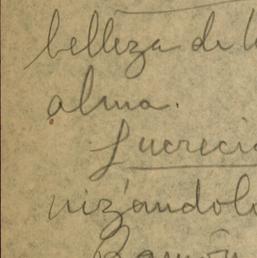 belleza de l
alma.
Lucreci
nizándol
Ramón